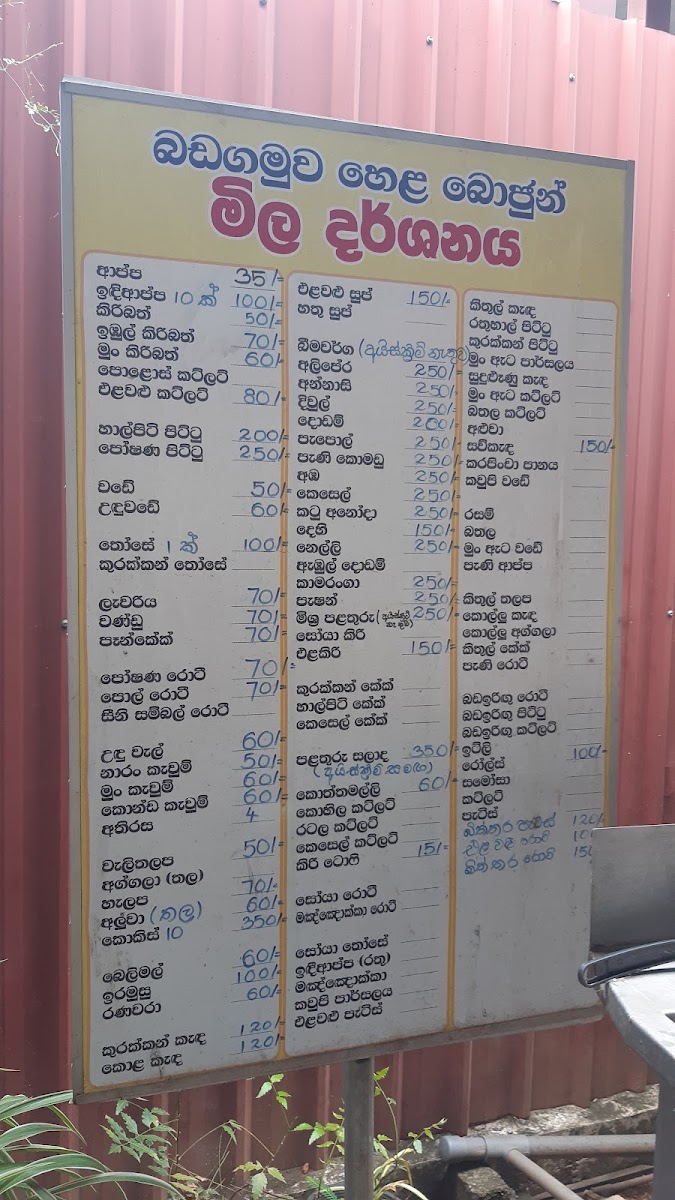 බඩගමුව හෙළ බොජුන්
මිල දර්ශනය
ආප්ප 35/=
ඉඳිආප්ප 10 ක් 100/=
කිරිබත් 50/=
ඉඹුල් කිරිබත් 70/=
මුං කිරිබත් 60/=
පොළොස් කට්ලට්
එළවළු කට්ලට් 80/=
හාල්පිටි පිට්ටු 200/=
පෝෂණ පිට්ටු 250/=
වඩේ 50/=
උඳුවඩේ 60/=
තෝසේ 1 ක් 100/=
කුරක්කන් තෝසේ
ලැවරිය 70/=
වණ්ඩු 70/=
පෑන්කේක් 70/=
පෝෂණ රොටී 70/=
පොල් රොටී 70/=
සීනි සම්බල් රොටී
උඳු වැල් 60/=
නාරං කැවුම් 50/=
මුං කැවුම් 60/=
කොන්ඩ කැවුම් 60/=
අතිරස 4
වැලිතලප 50/=
අග්ගලා (තල)
හැලප 70/=
අලුවා (තල) 60/=
කොකිස් 10 350/=
බෙලිමල් 60/=
ඉරමුසු 100/=
රණවරා 60/=
කුරක්කන් කැඳ 120/=
කොළ කැඳ 120/=
එළවළු සුප් 150/=
හතු සුප්
බීමවර්ග (අයිස්ක්‍රීම් නැතුව)
අලිපේර 250/=
අන්නාසි 250/=
දිවුල් 250/=
දොඩම් 200/=
පැපොල් 250/=
පැණි කොමඩු 250/=
අඹ 250/=
කෙසෙල් 250/=
කටු අනෝදා 250/=
දෙහි 150/=
නෙල්ලි 250/=
ඇඹුල් දොඩම්
කාමරංගා 250/=
පැෂන් 250/=
මිශ්‍ර පළතුරු 250/=
සෝයා කිරි
එළකිරි 150/=
කුරක්කන් කේක්
හාල්පිටි කේක්
කෙසෙල් කේක්
පළතුරු සලාද 350/=
(අයිස්ක්‍රීම් සමඟ)
කොත්තමල්ලි 60/=
කොහිල කට්ලට්
රටල කට්ලට්
කෙසෙල් කට්ලට්
කිරි ටොෆි 15/=
සෝයා රොටී
මඤ්ඤොක්කා රොටී
සෝයා තෝසේ
ඉඳිආප්ප (රතු)
මඤ්ඤොක්කා
කවුපි පාර්සලය
එළවළු පැටිස්
කිතුල් කැඳ
රතුහාල් පිට්ටු
කුරක්කන් පිට්ටු
මුං ඇට පාර්සලය
සුදුළූණු කැඳ
මුං ඇට කට්ලට්
බතල කට්ලට්
අළුවා
සව්කැඳ 150/=
කරපිංචා පානය
කවුපි වඩේ
රසම්
බතල
මුං ඇට වඩේ
පැණි ආප්ප
කිතුල් තලප
කොල්ලු කැඳ
කොල්ලු අග්ගලා
කිතුල් කේක්
පැණි රොටී
බඩඉරිඟු රොටී
බඩඉරිඟු පිට්ටු
බඩඉරිඟු කට්ලට්
ඉට්ලි
රෝල්ස් 100/=
සමෝසා
කට්ලට්
පැටිස්
බිත්තර 120/=
එළවළු රොටී
බිත්තර රොටී